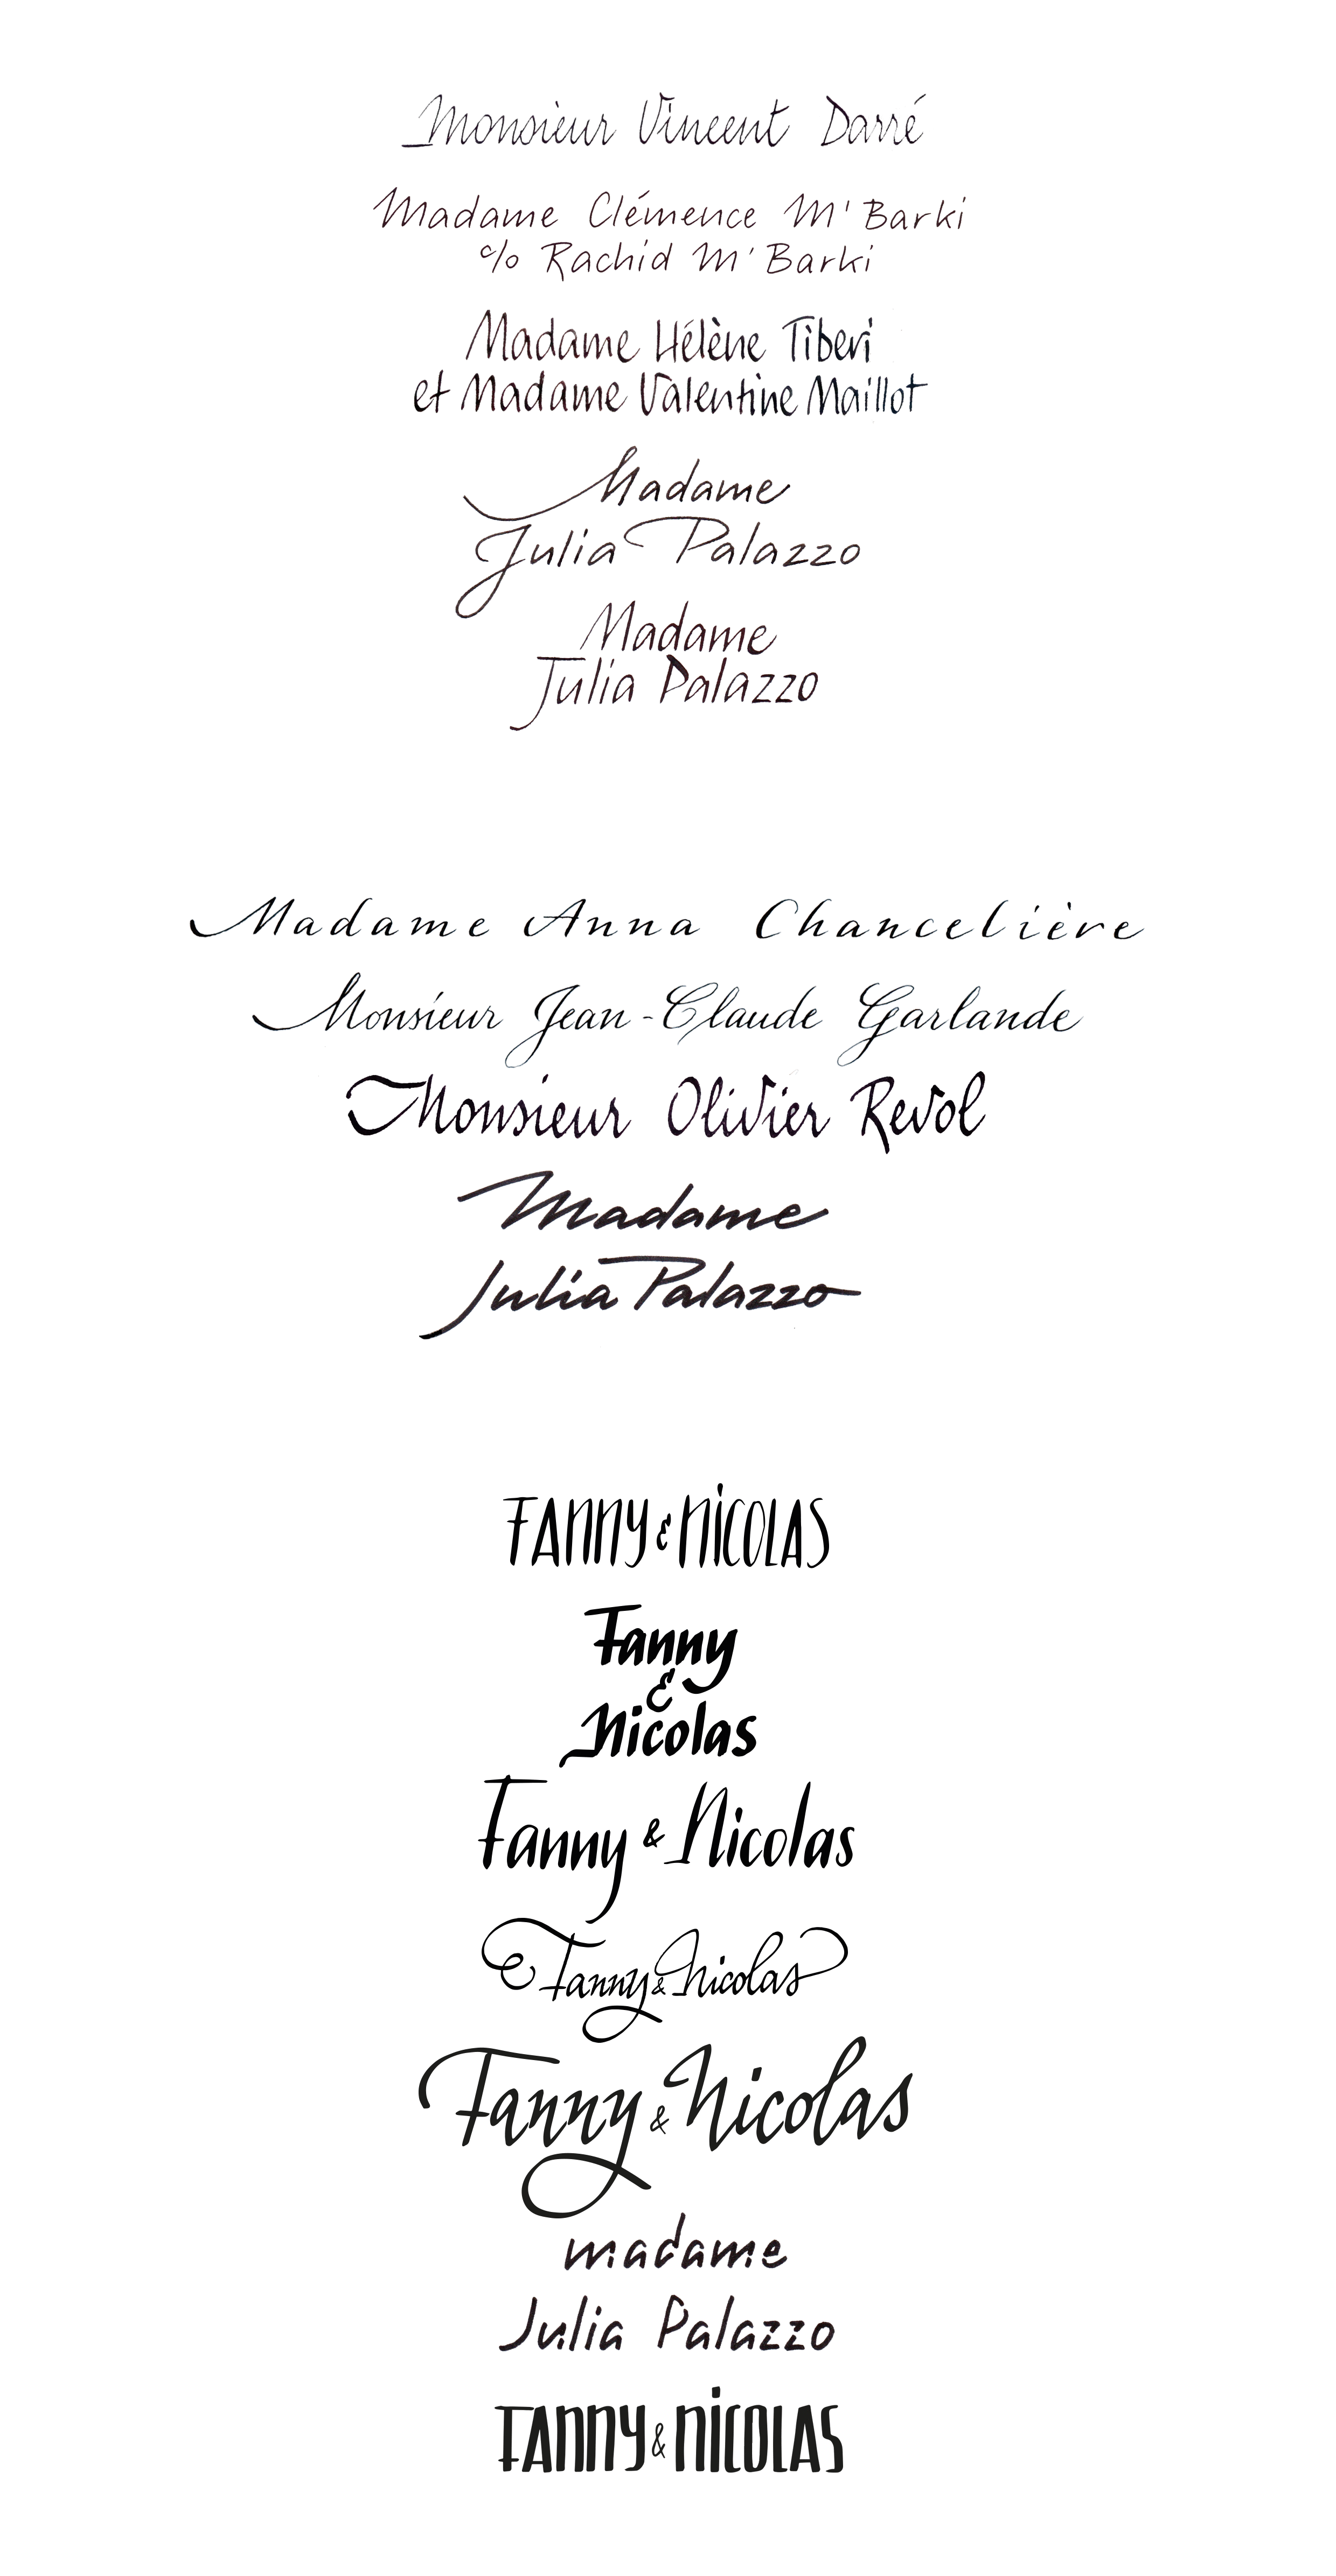 Monsieur Vincent Darré
Madame Clémence M'Barki
c/o Rachid M'Barki
Madame Hélène Tiberi
et Madame Valentine Maillot
Madame
Julia Palazzo
Madame
Julia Palazzo
Madame Anna Chancelière
Monsieur Jean-Claude Garlande
Monsieur Olivier Revol
Madame
Julia Palazzo
FANNY & NICOLAS
Fanny
&
Nicolas
Fanny & Nicolas
Fanny & Nicolas
Fanny & Nicolas
madame
Julia Palazzo
FANNY & NICOLAS